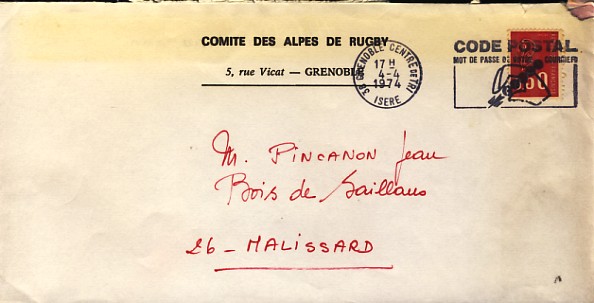 COMITE DES ALPES DE RUGBY
5, rue Vicat — GRENOBLE
38 GRENOBLE CENTRE DE TRI
17 H
4-4
1974
ISERE
CODE POSTAL
MOT DE PASSE DE COURRIERS
0.50
M. PINCANON Jean
Bois de Saillans
26 - MALISSARD